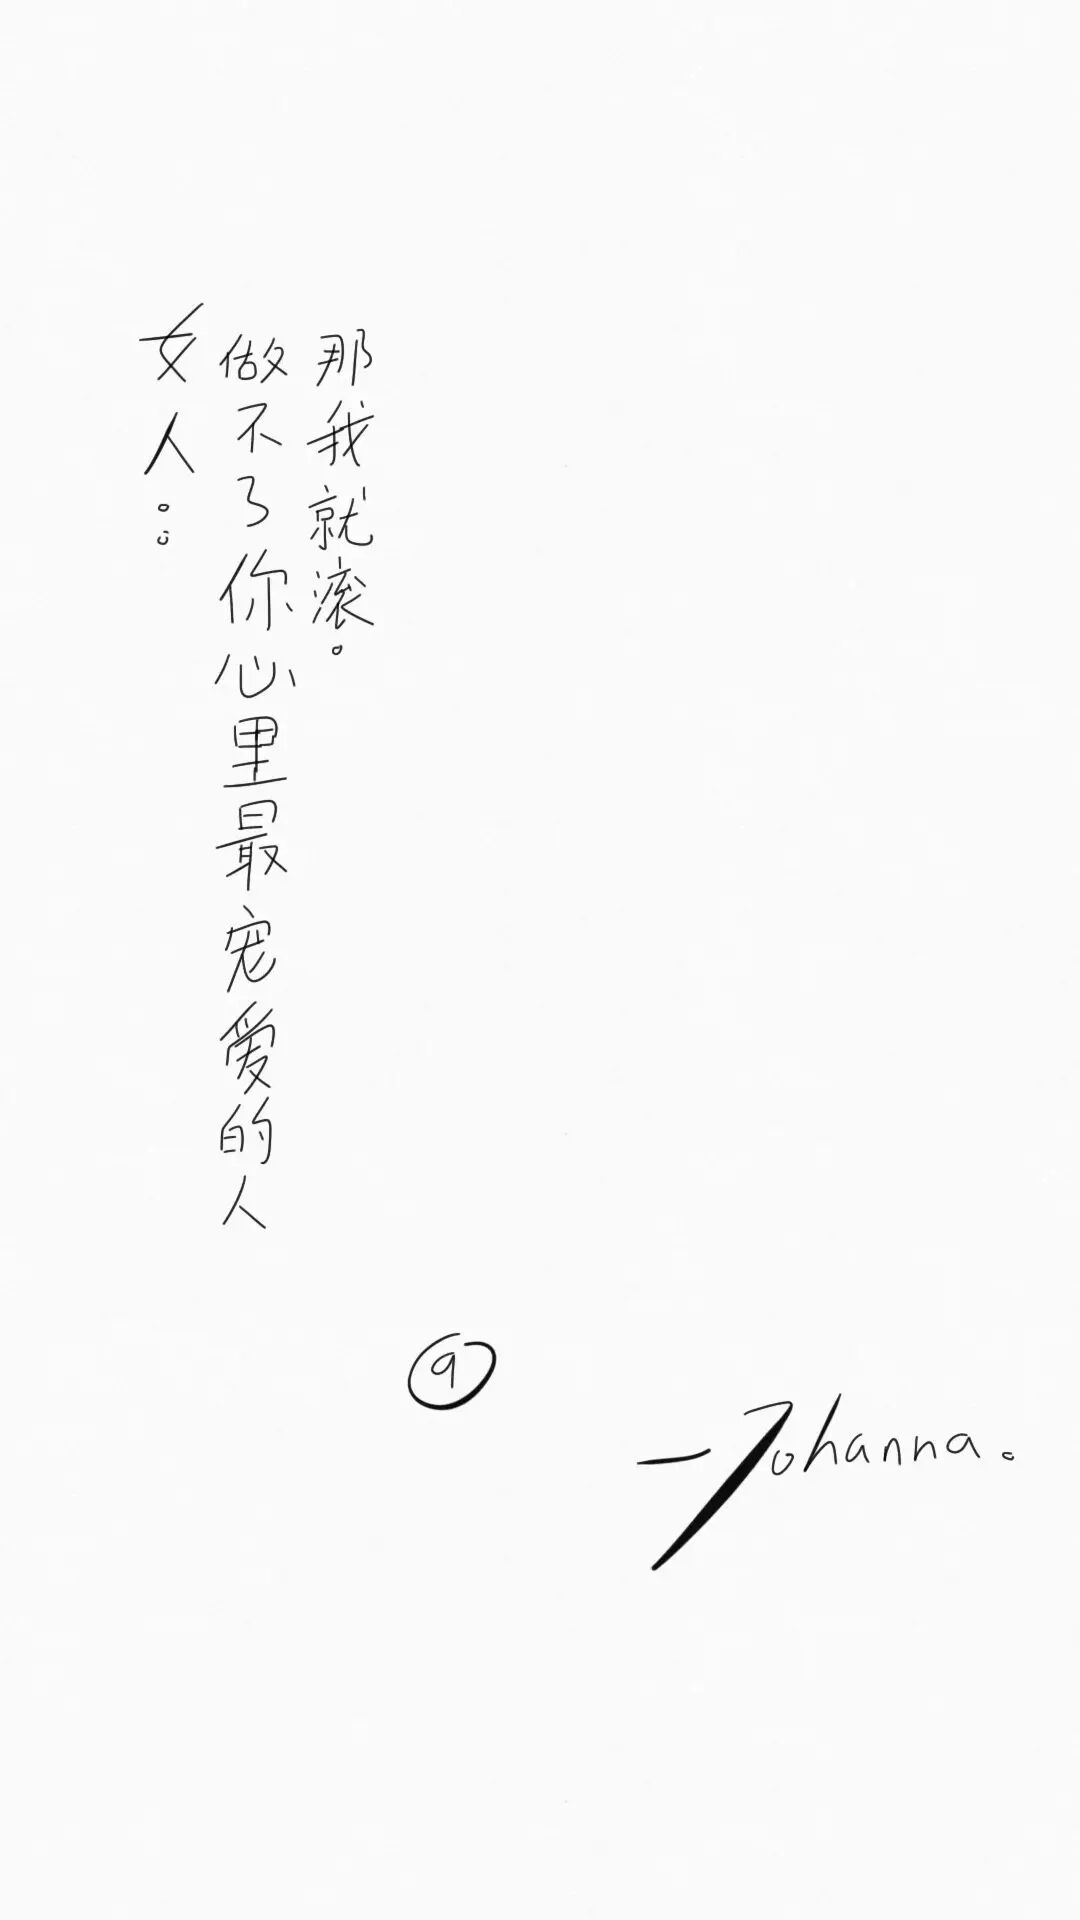 女人：
做不了你心里最宠爱的人
那我就滚。
⑨
—Johanna。